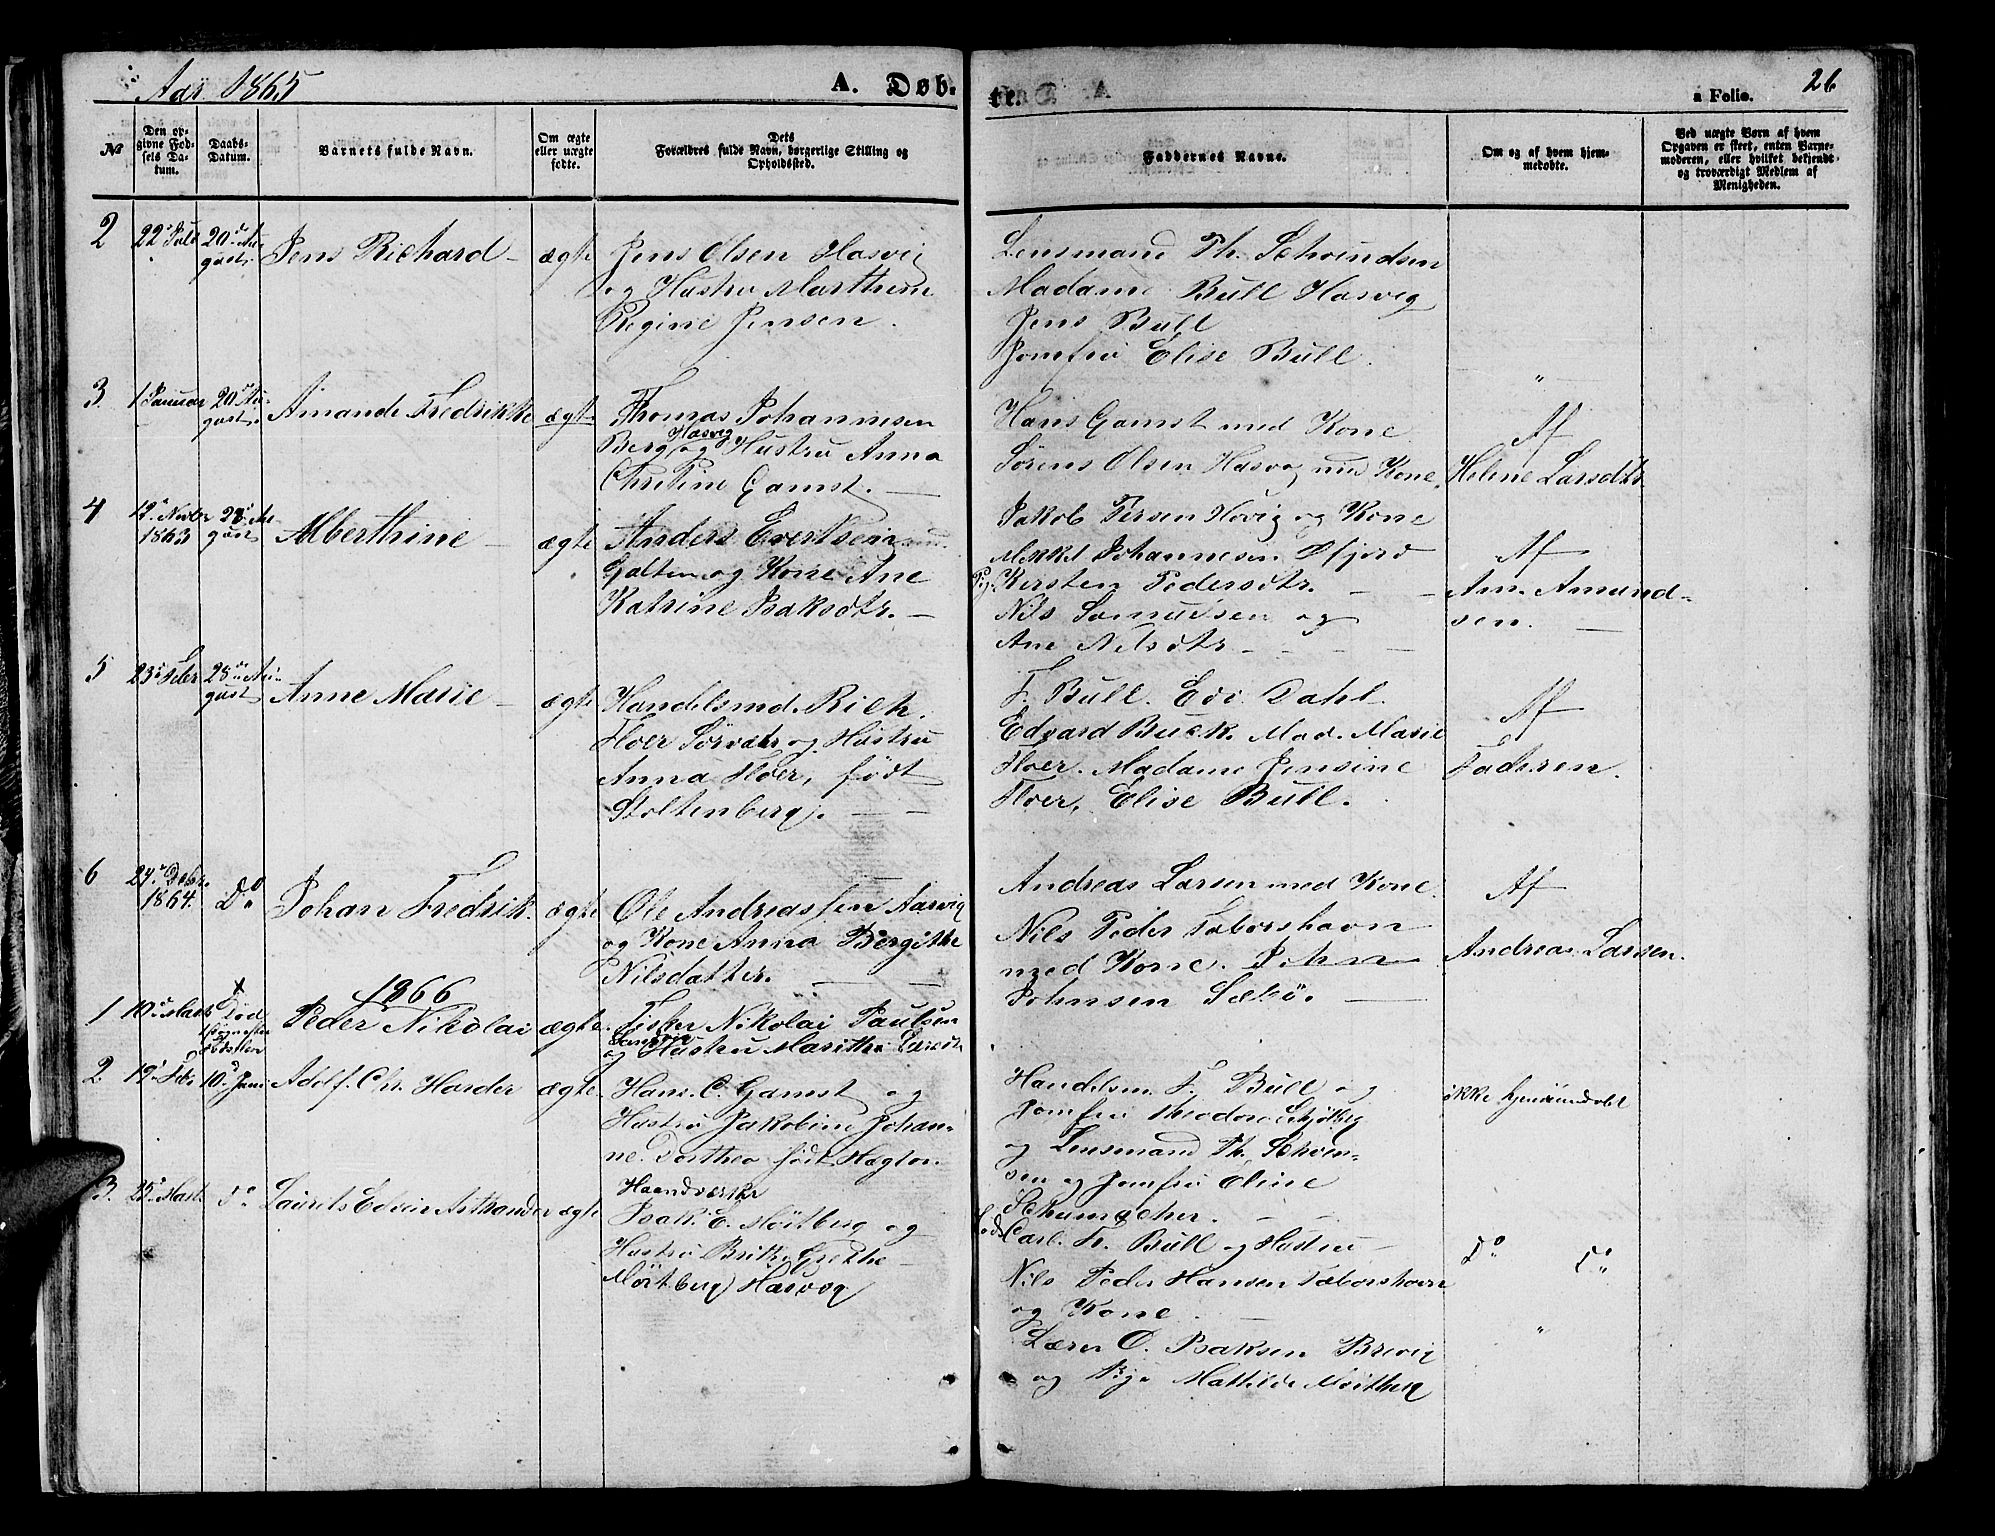 Aar 1865
A. Døb-
te.
a Folio.
26
No
Den op-
givne Fød-
sels Da-
tum.
Daabs-
Datum.
Barnets fulde Navn.
Om ægte
eller uægte
fødte.
Dets
Forældres fulde Navn, borgerlige Stilling og
Opholdssted.
Faddernes Navne.
Om og af hvem hjem-
medøbte.
Ved uægte Børn af hvem
Opgaven er skeet, enten Barne-
moderen, eller hvilket bekjendt-
og troværdigt Medlem af
Menigheden.
2
22de Juli
20de Au-
gust.
Jens Richard
ægte
Jens Olsen Hasvig
og Hustru Marthine
Regine Jensen.
Lensmand Th. Schvendsen
Madame Bull Hasvig
Jens Bull
Jomfru Elise Bull.
"
3.
1 Januar
20de Au-
gust.
Amande Fredrikke
ægte
Thomas Johannesen
Hasvig
Berg og Hustru Anna
Christine Gamst.
Hans Gamst med Kone
Sørens Olsen Hasvog med Kone.
Af
Helene Larsdtr
4
12te Novbr
1863
28de Au-
gust
Alberthine
ægte
Anders Evertsen
Galten og Kone Ane
Katrine Isaksdtr.
Jakob Persen Hovig og Kone
Mikkel Johannesen Øfjord
Pig. Kirsten Pedersdtr.
Nils Samuelsen og
Ane Nilsdtr
Af
Am. Amund-
sen.
5
23de Febr
28de Au-
gust
Anne Marie
ægte
Handelsmd. Rich.
Floer Sørvær og Hustru
Anna Floer, født
Stoltenberg.
F. Bull. Edv. Dahl
Edvard Buck. Mad. Marie
Floer. Madame Jensine
Floer, Elise Bull.
Af
Faderen.
6
24de Debr.
1864.
Do
Johan Fredrik.
ægte
Ole Andreassen Aarvig
og Kone Anna Bergithe
Nilsdatter.
Andreas Larsen med Kone
Nils Peder Taborshavn
med Kone. John
Johnsen Sæbø.
Af
Andreas Larsen.
1866
1
10de Marts
x
Død
Peder Nikolai
ægte.
Fisker Nikolai Paulsen
og Hustru Marithe
2
19de Febr
10de Juni
Adolf. Chr. Harder
ægte.
Hans. C. Gamst og
Hustru Jakobine Johan-
ne Dorthea født
Handelsm. F. Bull og
Jomfru Theodore Schjøtberg
og Lensmand Th. Schven-
sen og Jomfru Eline
Schumacher.
ikke hjemmedøbt
3.
25de Marts
Do
Laurits Edvin Arthander
ægte
Haandværker
Isak. E. Møitberg og
Hustru Brita Grethe
Møitberg Hasvog
Carl. Fr. Bull og Hustru
Nils Peder Hansen Taborshavn
og Kone.
Lærer O. Isaksen Brevig
og Pige Mathilde
Do Do
"